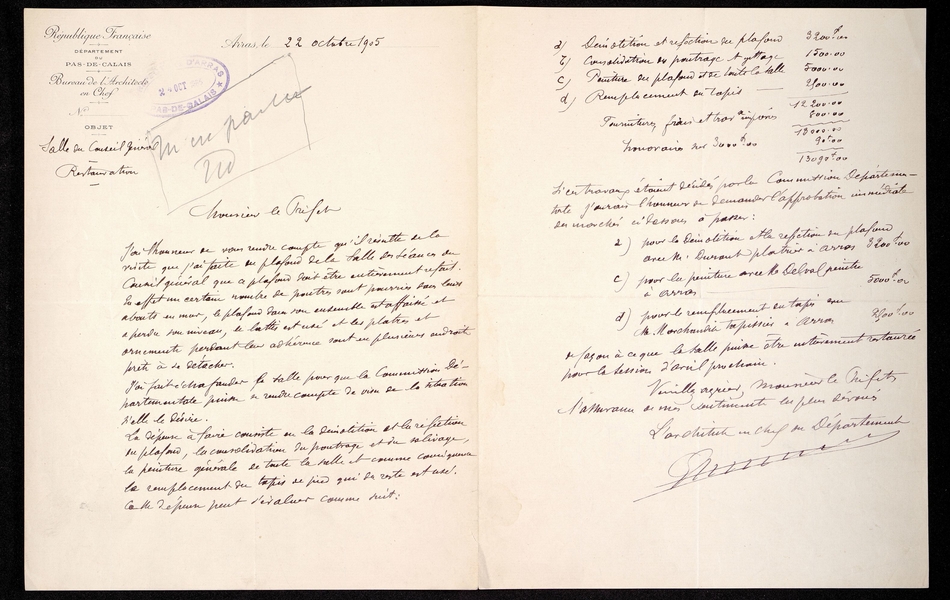 République Française
DÉPARTEMENT
DU
PAS-DE-CALAIS
Bureau de l'Architecte
en Chef
N°
OBJET
Salle du Conseil Général
Restauration
Arras, le 22 octobre 1905
D'ARRAS
OCT
PAS-DE-CALAIS
Monsieur le Préfet
J'ai l'honneur de vous rendre compte qu'il résulte de la
visite que j'ai faite du plafond de la salle des séances du
Conseil général que ce plafond doit être entièrement refait.
En effet un certain nombre de poutres sont pourries dans leurs
abouts en mur, le plafond dans son ensemble est affaissé et
a perdu son niveau, le lattis est usé et les plâtres et
ornements perdant leur adhérence sont en plusieurs endroits
prêts à se détacher.
J'ai fait échafauder la salle pour que la Commission Dé-
partementale puisse se rendre compte de visu de la situation
si elle le désire.
La dépense à faire consiste en la démolition et la réfection
du plafond, la consolidation du poutrage et du solivage,
la peinture générale de toute la salle et comme conséquence
le remplacement du tapis de pied qui du reste est usé.
Cette dépense peut s'évaluer comme suit:
a) Démolition et réfection du plafond 3200f.00
b) Consolidation du poutrage et gîtage 1500.00
c) Peinture du plafond et de toute la salle 5000.00
d) Remplacement du tapis 2500.00
12200.00
Fournitures, frais et trav. imprévus 800.00
13000.00
honoraires sur 3000f.00 90f.00
13090f.00
Si ces travaux étaient décidés par la Commission Départemen-
tale j'aurais l'honneur de demander l'approbation immédiate
des marchés ci dessous à passer:
a) pour la démolition et la réfection du plafond
avec M. Durant plâtrier à Arras 3200f.00
c) pour la peinture avec M. Delval peintre
à Arras 5000f.00
d) pour le remplacement du tapis avec
M. Marchandise tapissier à Arras 2500f.00
de façon à ce que la salle puisse être entièrement restaurée
pour la session d'avril prochain.
Veuillez agréer, Monsieur le Préfet,
l'assurance de mes sentiments les plus dévoués
L'architecte en chef du Département